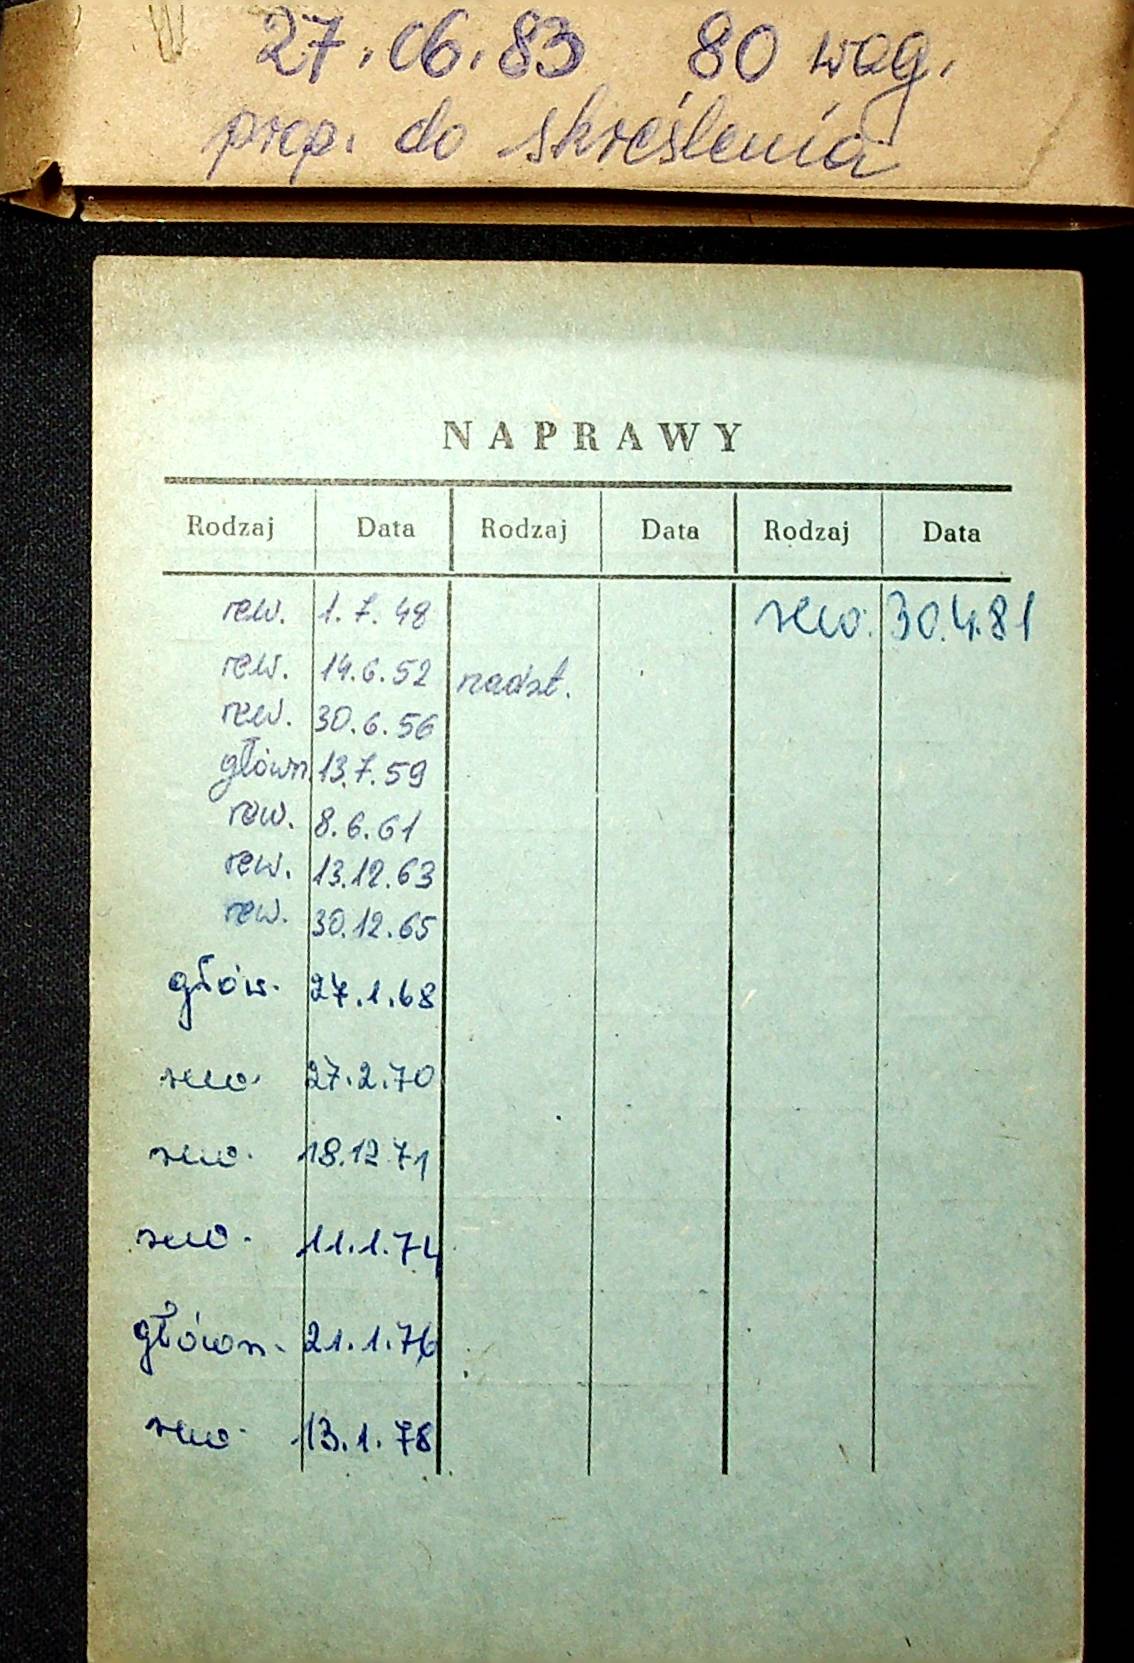 27.06.83 80 wag.
prop. do skreślenia
NAPRAWY
Rodzaj Data Rodzaj Data Rodzaj Data
rew. 1.7.48 rew. 30.4.81
rew. 14.6.52 nadzt.
rew. 30.6.56
główn. 13.7.59
rew. 8.6.61
rew. 13.12.63
rew. 30.12.65
głów. 27.1.68
rew. 27.2.70
rew. 18.12.71
rew. 11.1.74
główn. 21.1.76
rew. 13.1.78